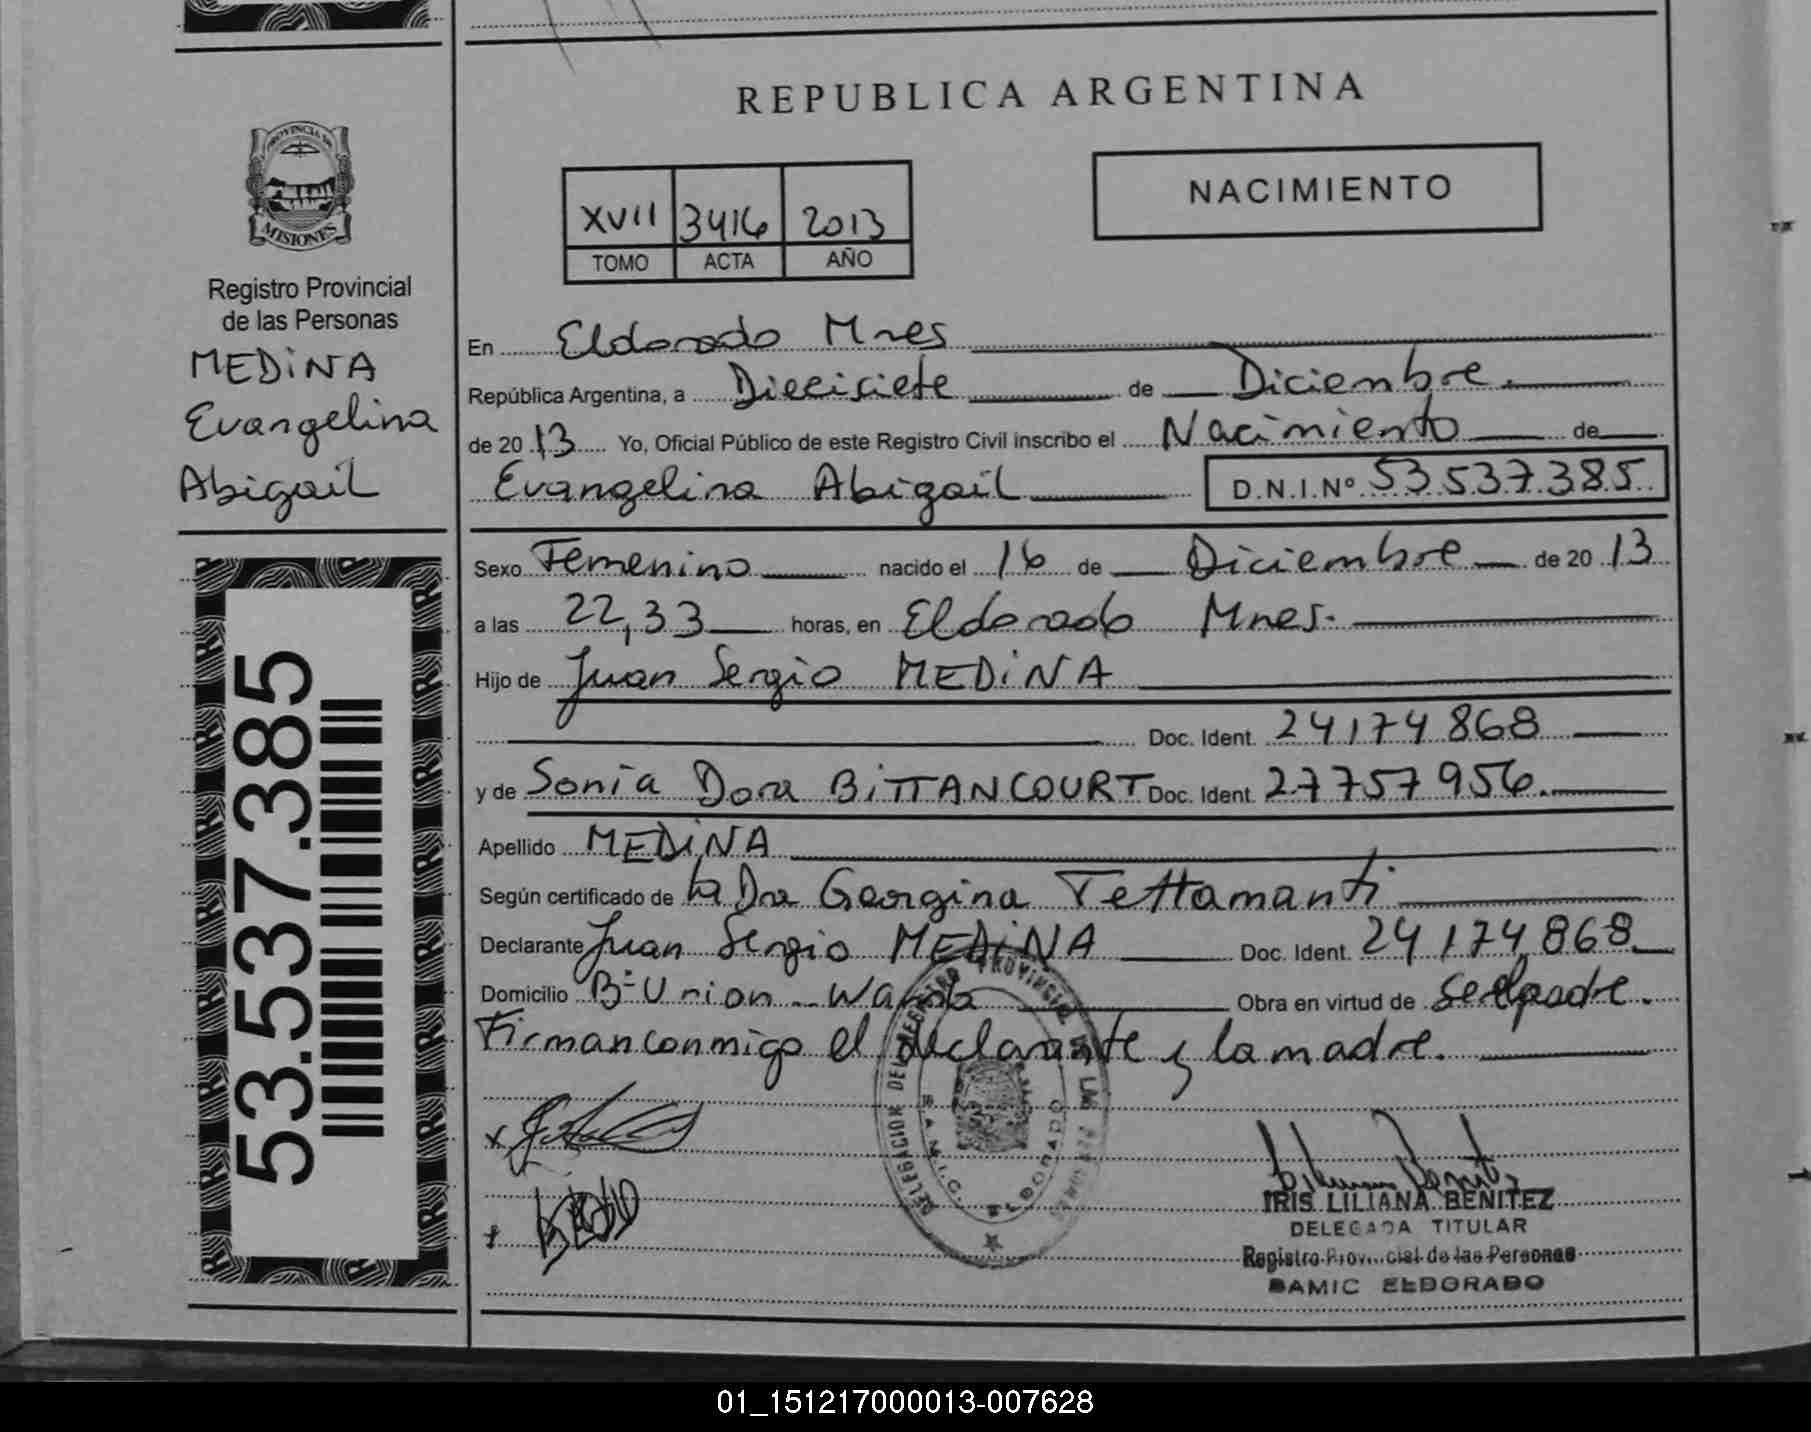 REPUBLICA ARGENTINA
NACIMIENTO
XVII 3416 2013
TOMO ACTA AÑO
PROVINCIA DE
MISIONES
Registro Provincial
de las Personas
MEDINA
Evangelina
Abigail
53.537.385
En Eldorado Mnes
República Argentina, a Diecisiete de Diciembre.
de 2013 Yo, Oficial Público de este Registro Civil inscribo el Nacimiento de
Evangelina Abigail D.N.I.Nº 53.537.385
Sexo Femenino nacido el 16 de Diciembre de 2013
a las 22,33 horas, en Eldorado Mnes.
Hijo de Juan Sergio MEDINA
Doc. Ident. 24174868
y de Sonia Dora BITTANCOURT Doc. Ident. 27757956.
Apellido MEDINA
Según certificado de la Dra Georgina Tettamanti
Declarante Juan Sergio MEDINA Doc. Ident. 24174,868
Domicilio Bº Union - Wanda Obra en virtud de ser el padre.
Firman conmigo el declarante y la madre.
DELEGACION DEL REGISTRO PROVINCIAL DE LAS PERSONAS
S.A.M.I.C. ELDORADO
IRIS LILIANA BENITEZ
DELEGADA TITULAR
Registro Provincial de las Personas
SAMIC ELDORADO
01_151217000013-007628